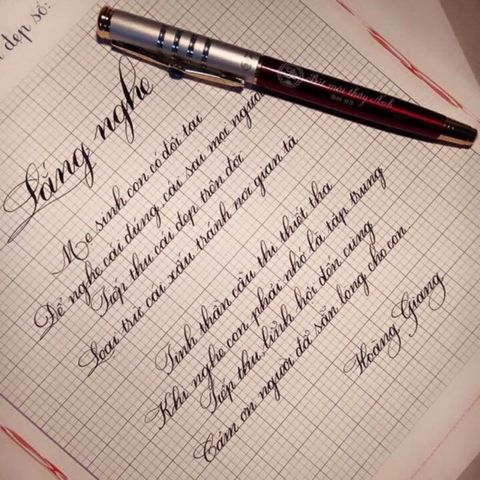 đẹp số:
Lắng nghe
Mẹ sinh con có đôi tai
Để nghe cái đúng, cái sai mọi người
Tiếp thu cái đẹp trên đời
Loại trừ cái xấu tránh nơi gian tà
Tinh thần cầu thị thiết tha
Khi nghe con phải nhớ là tập trung
Tiếp thu lĩnh hội đến cùng
Cảm ơn người đã sẵn lòng cho con
Hoàng Giang
Bút mài thầy Ánh
SH 03